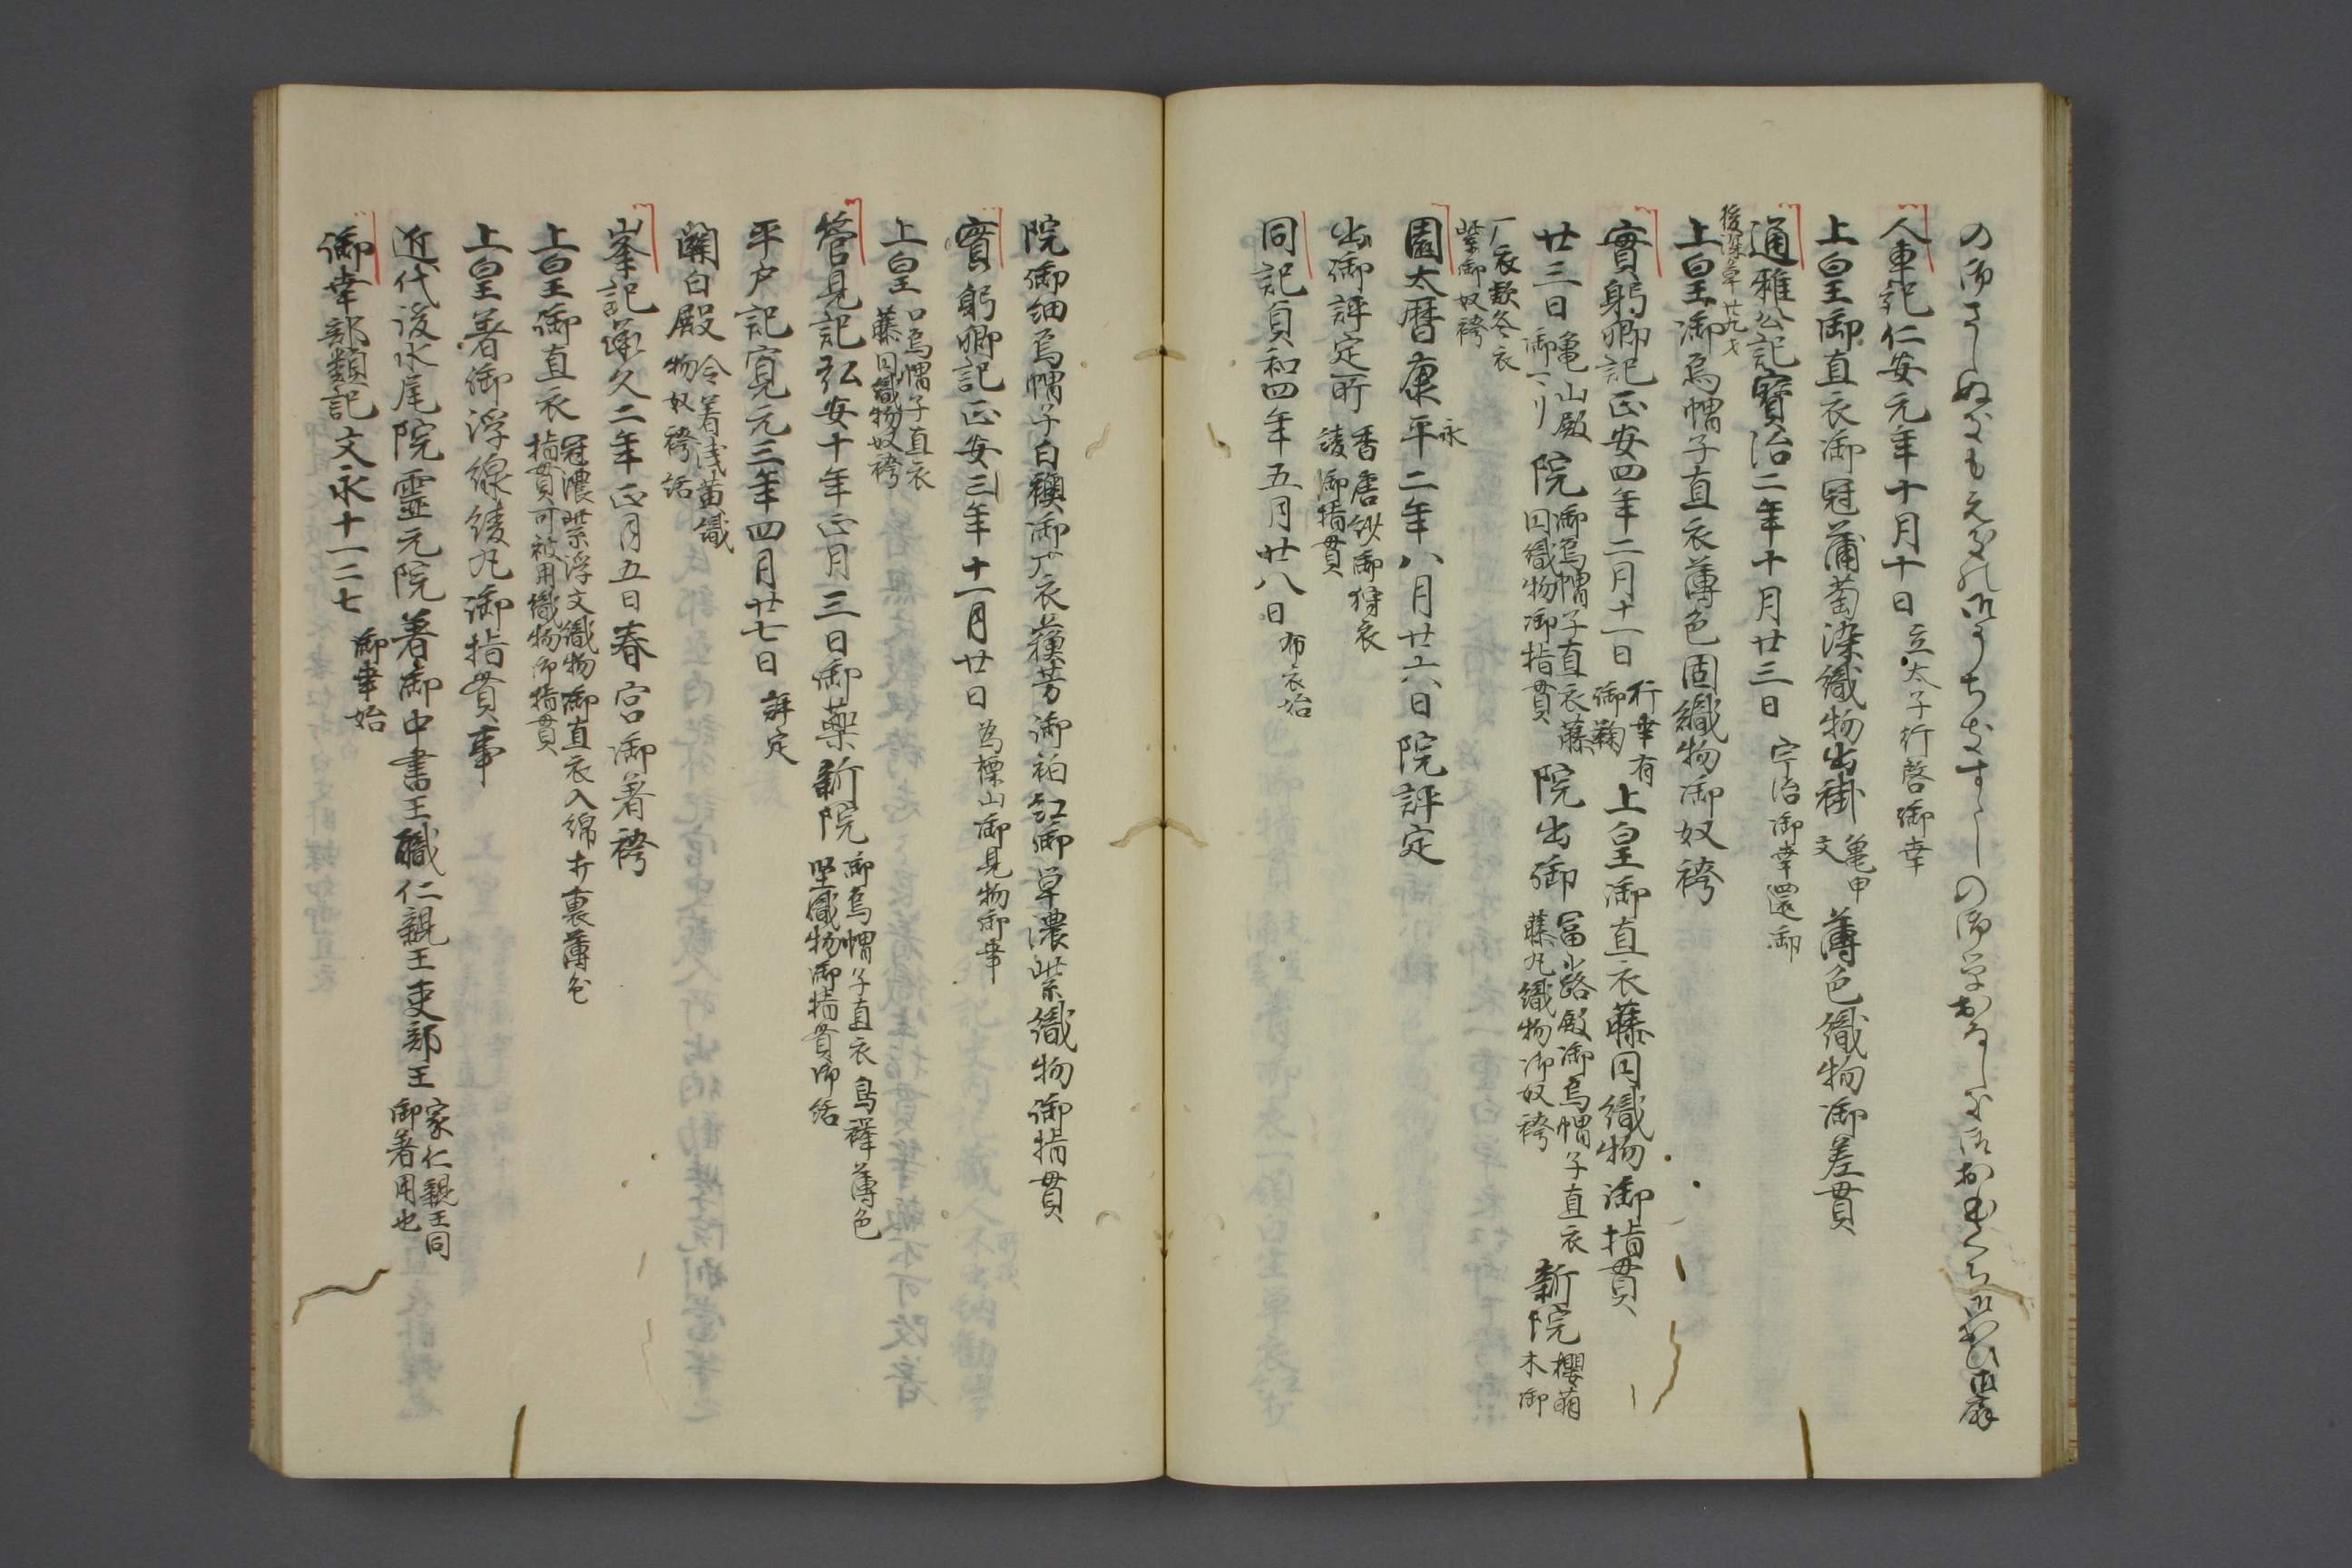 人車記仁安元年十月十日 立太子行啓御幸
上皇御直衣御冠蒲萄染織物出褂 亀甲文 薄色織物御差貫
通雅公記寶治二年十月廿三日 宇治御幸還御
後深草 廿九才
上皇御烏帽子直衣薄色固織物御奴袴
實躬卿記正安四年二月十一日 行幸有御鞠 上皇御直衣藤円織物御指貫
廿三日 亀山殿 院 御烏帽子直衣藤円織物御指貫 院出御 冨小路殿御烏帽子直衣藤丸織物御奴袴 新院 櫻萌木御
衣欵冬衣紫御奴袴
園太暦康永平二年八月廿六日院評定
出御評定所 香唐紗御狩衣綾御指貫
同記貞和四年五月廿八日 布衣始
院御細烏帽子白襖御衣蘓芳御袙紅御単濃紫織物御指貫
實躬卿記正安三年十一月廿日 為標山御見物御幸
上皇 烏帽子直衣藤円織物奴袴
管見記弘安十年正月三日御薬新院 御烏帽子直衣鳥襷薄色堅織物御指貫御括
平戸記寛元三年四月廿七日 評定
關白殿 令着浅黄織物奴袴括
峯記承久二年正月五日春宮御着袴
上皇御直衣 冠濃紫浮文織物御直衣入綿并裏薄色指貫可被用織物御指貫
上皇着御浮線綾丸御指貫事
近代後水尾院霊元院著御中書王職仁親王吏部王 家仁親王同御著用也
御幸部類記文永十一二七 御幸始